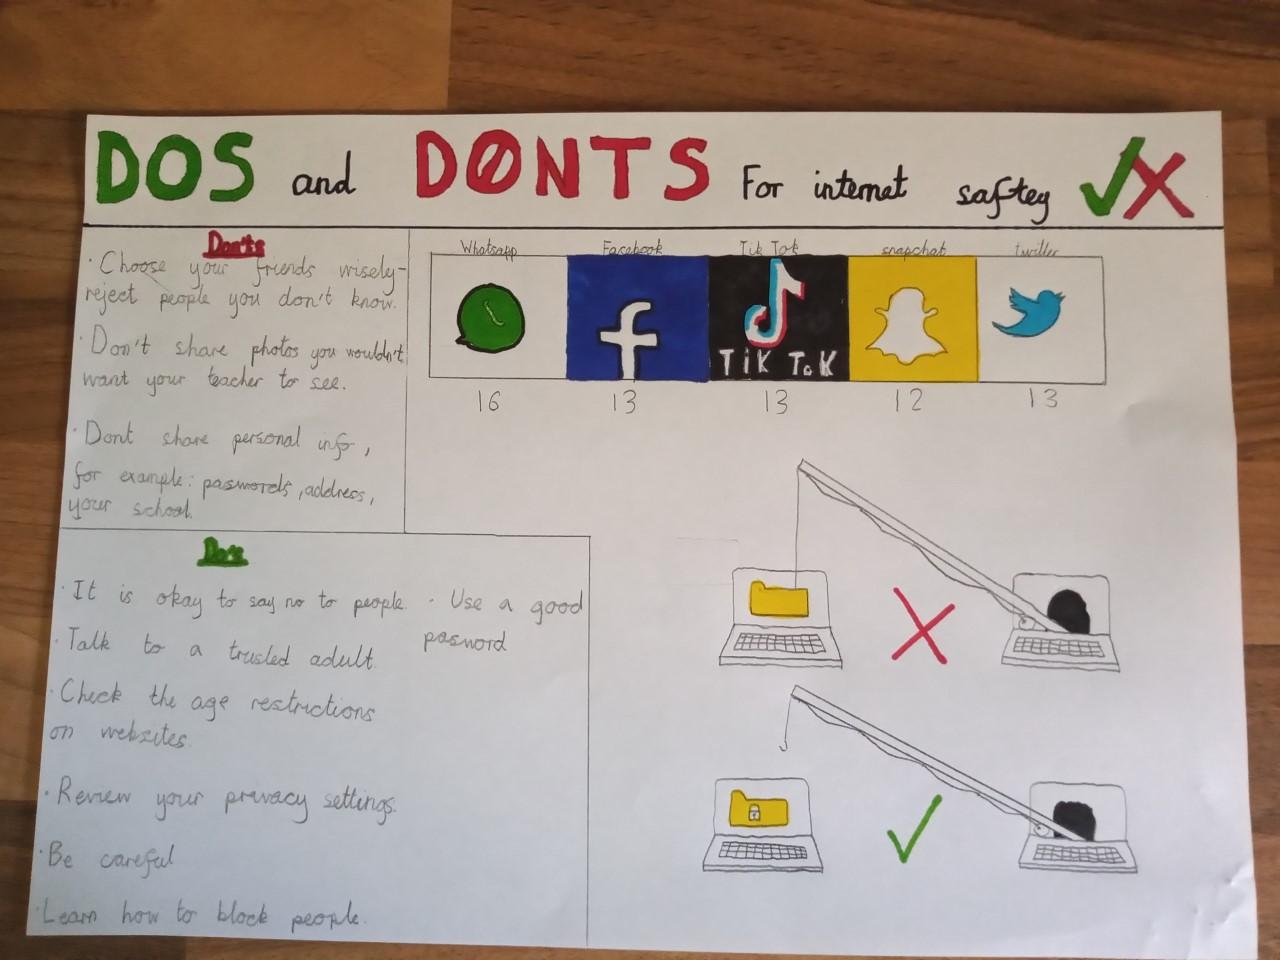 DOS and DONTS For internet saftey
Don'ts
· Choose your friends wisely-
reject people you don't know.
· Don't share photos you wouldn't
want your teacher to see.
· Dont share personal info,
for example: paswords, address,
your school.
Whatsapp Facebook Tik Tok snapchat twitter
TiK ToK
16 13 13 12 13
Do's
· It is okay to say no to people.
· Talk to a trusted adult.
· Check the age restrictions
on websites.
· Review your privacy settings.
· Be careful
· Learn how to block people.
· Use a good
pasword